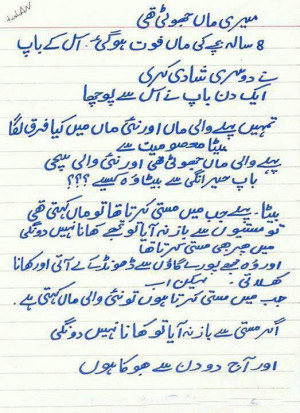 میری ماں جھوٹی تھی
8 سالہ بچے کی ماں فوت ہوگئی۔ اس کے باپ
نے دوسری شادی کرلی
ایک دن باپ نے اس سے پوچھا
تمہیں پہلے والی ماں اور نئی ماں میں کیا فرق لگا
بیٹا معصومیت سے
پہلے والی ماں جھوٹی تھی اور نئی والی سچی
باپ حیرانگی سے بیٹا وہ کیسے ؟؟؟
بیٹا۔ پہلے جب میں مستی کرتا تھا تو ماں کہتی تھی
تو مستیوں سے باز نہ آیا تو تجھے کھانا نہیں دونگی
میں پھر بھی مستی کرتا تھا
اور وہ مجھے پورے گاؤں سے ڈھونڈ کے لے آتی اور کھانا
کھلاتی۔ لیکن اب
جب میں مستی کرتا ہوں تو نئی والی ماں کہتی ہے۔
اگر مستی سے باز نہ آیا تو کھانا نہیں دونگی
اور آج دو دن سے بھوکا ہوں